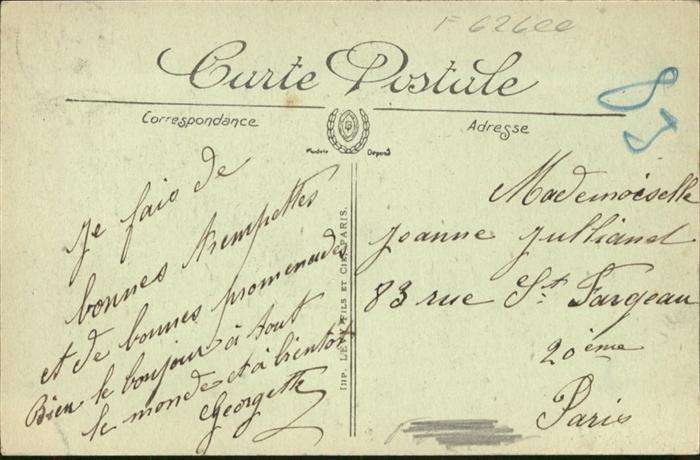 F 62600
Carte Postale
Correspondance
Adresse
Modèle Déposé
83
Je fais de
bonnes trempettes
et de bonnes promenades
Bien le bonjour à tout
le monde et à bientot
Georgette
IMP. LEVY FILS ET CIE, PARIS.
Mademoiselle
Jeanne Julliand
83 rue St. Fargeau
20ème
Paris